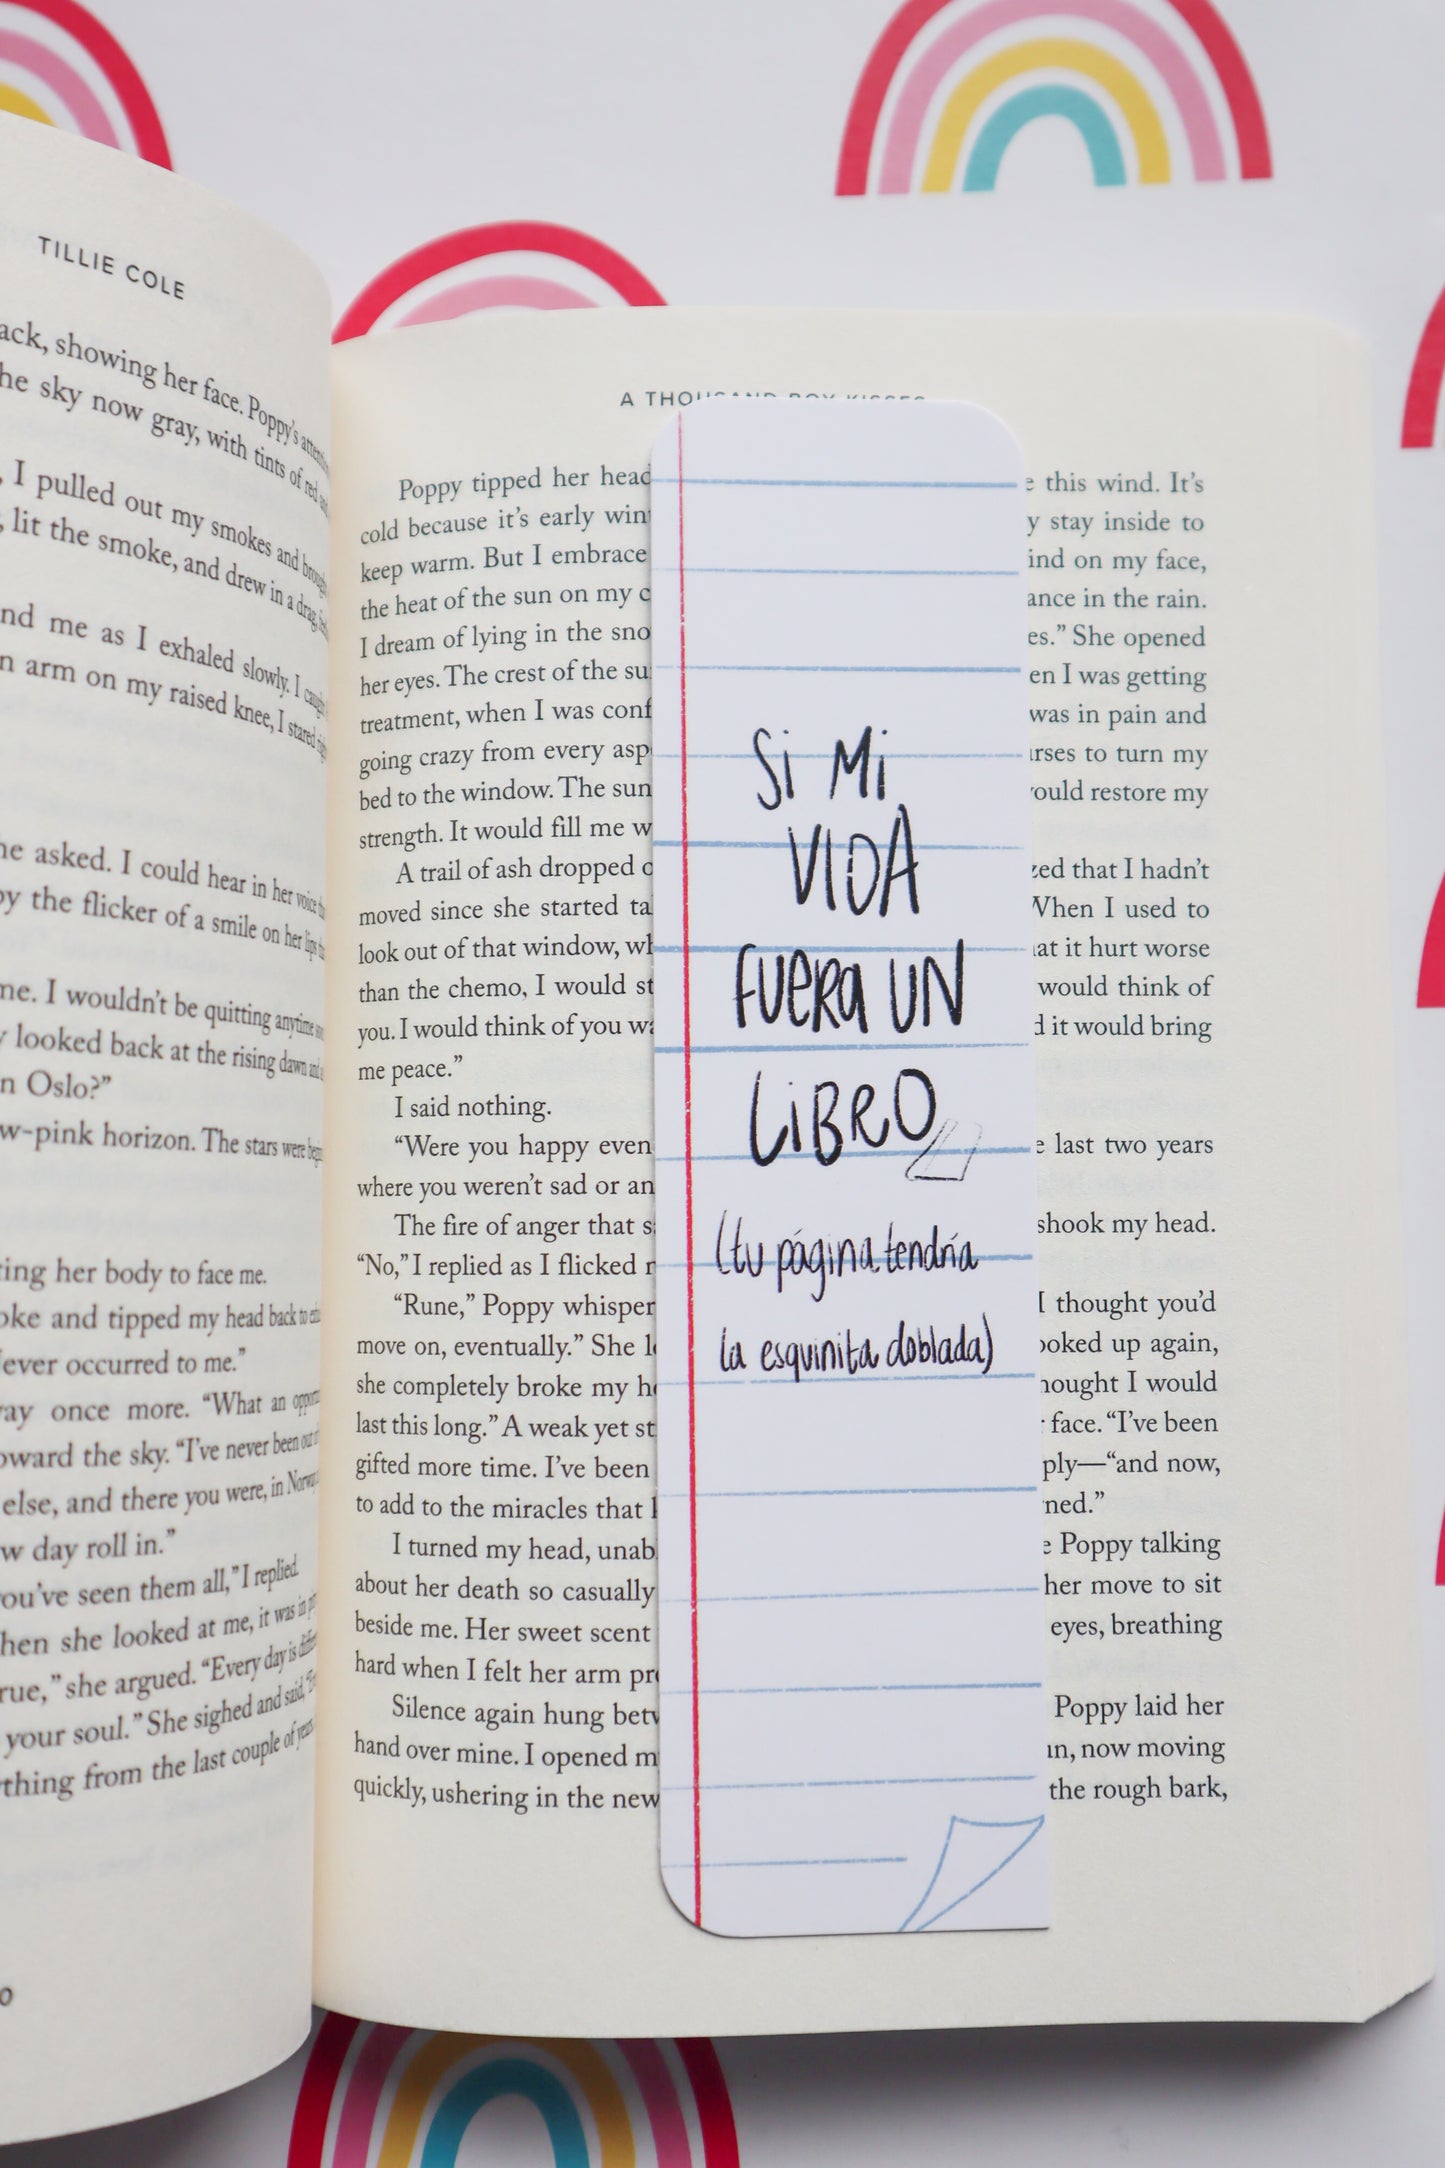 TILLIE COLE
ack, showing her face. Poppy's
he sky now gray, with tints of red and
, I pulled out my smokes and
, lit the smoke, and drew in a drag,
nd me as I exhaled slowly. I
n arm on my raised knee, I stared
he asked. I could hear in her voice
by the flicker of a smile on her lips
me. I wouldn't be quitting anytime
y looked back at the rising dawn and
n Oslo?"
w-pink horizon. The stars were
ring her body to face me.
oke and tipped my head back to
ever occurred to me."
ay once more. "What an
oward the sky. "I've never been
else, and there you were, in
w day roll in."
ou've seen them all," I replied.
hen she looked at me, it was in
rue," she argued. "Every day is
your soul." She sighed and said,
thing from the last couple of years
0
A THOUSAND BOY KISSES
Poppy tipped her head e this wind. It's
cold because it's early win y stay inside to
keep warm. But I embrace ind on my face,
the heat of the sun on my c ance in the rain.
I dream of lying in the sno es." She opened
her eyes. The crest of the su en I was getting
treatment, when I was conf was in pain and
going crazy from every asp rses to turn my
bed to the window. The sun ould restore my
strength. It would fill me w
A trail of ash dropped o zed that I hadn't
moved since she started ta When I used to
look out of that window, wh at it hurt worse
than the chemo, I would st would think of
you. I would think of you wa d it would bring
me peace."
I said nothing.
"Were you happy even e last two years
where you weren't sad or an
The fire of anger that s shook my head.
"No," I replied as I flicked
"Rune," Poppy whisper I thought you'd
move on, eventually." She l ooked up again,
she completely broke my h hought I would
last this long." A weak yet st face. "I've been
gifted more time. I've been ply—"and now,
to add to the miracles that rned."
I turned my head, unab e Poppy talking
about her death so casually her move to sit
beside me. Her sweet scent eyes, breathing
hard when I felt her arm pr
Silence again hung betw Poppy laid her
hand over mine. I opened m un, now moving
quickly, ushering in the new the rough bark,
Si Mi
VIDA
FUERA UN
LiBRO
(tu página tendría
la esquinita doblada)